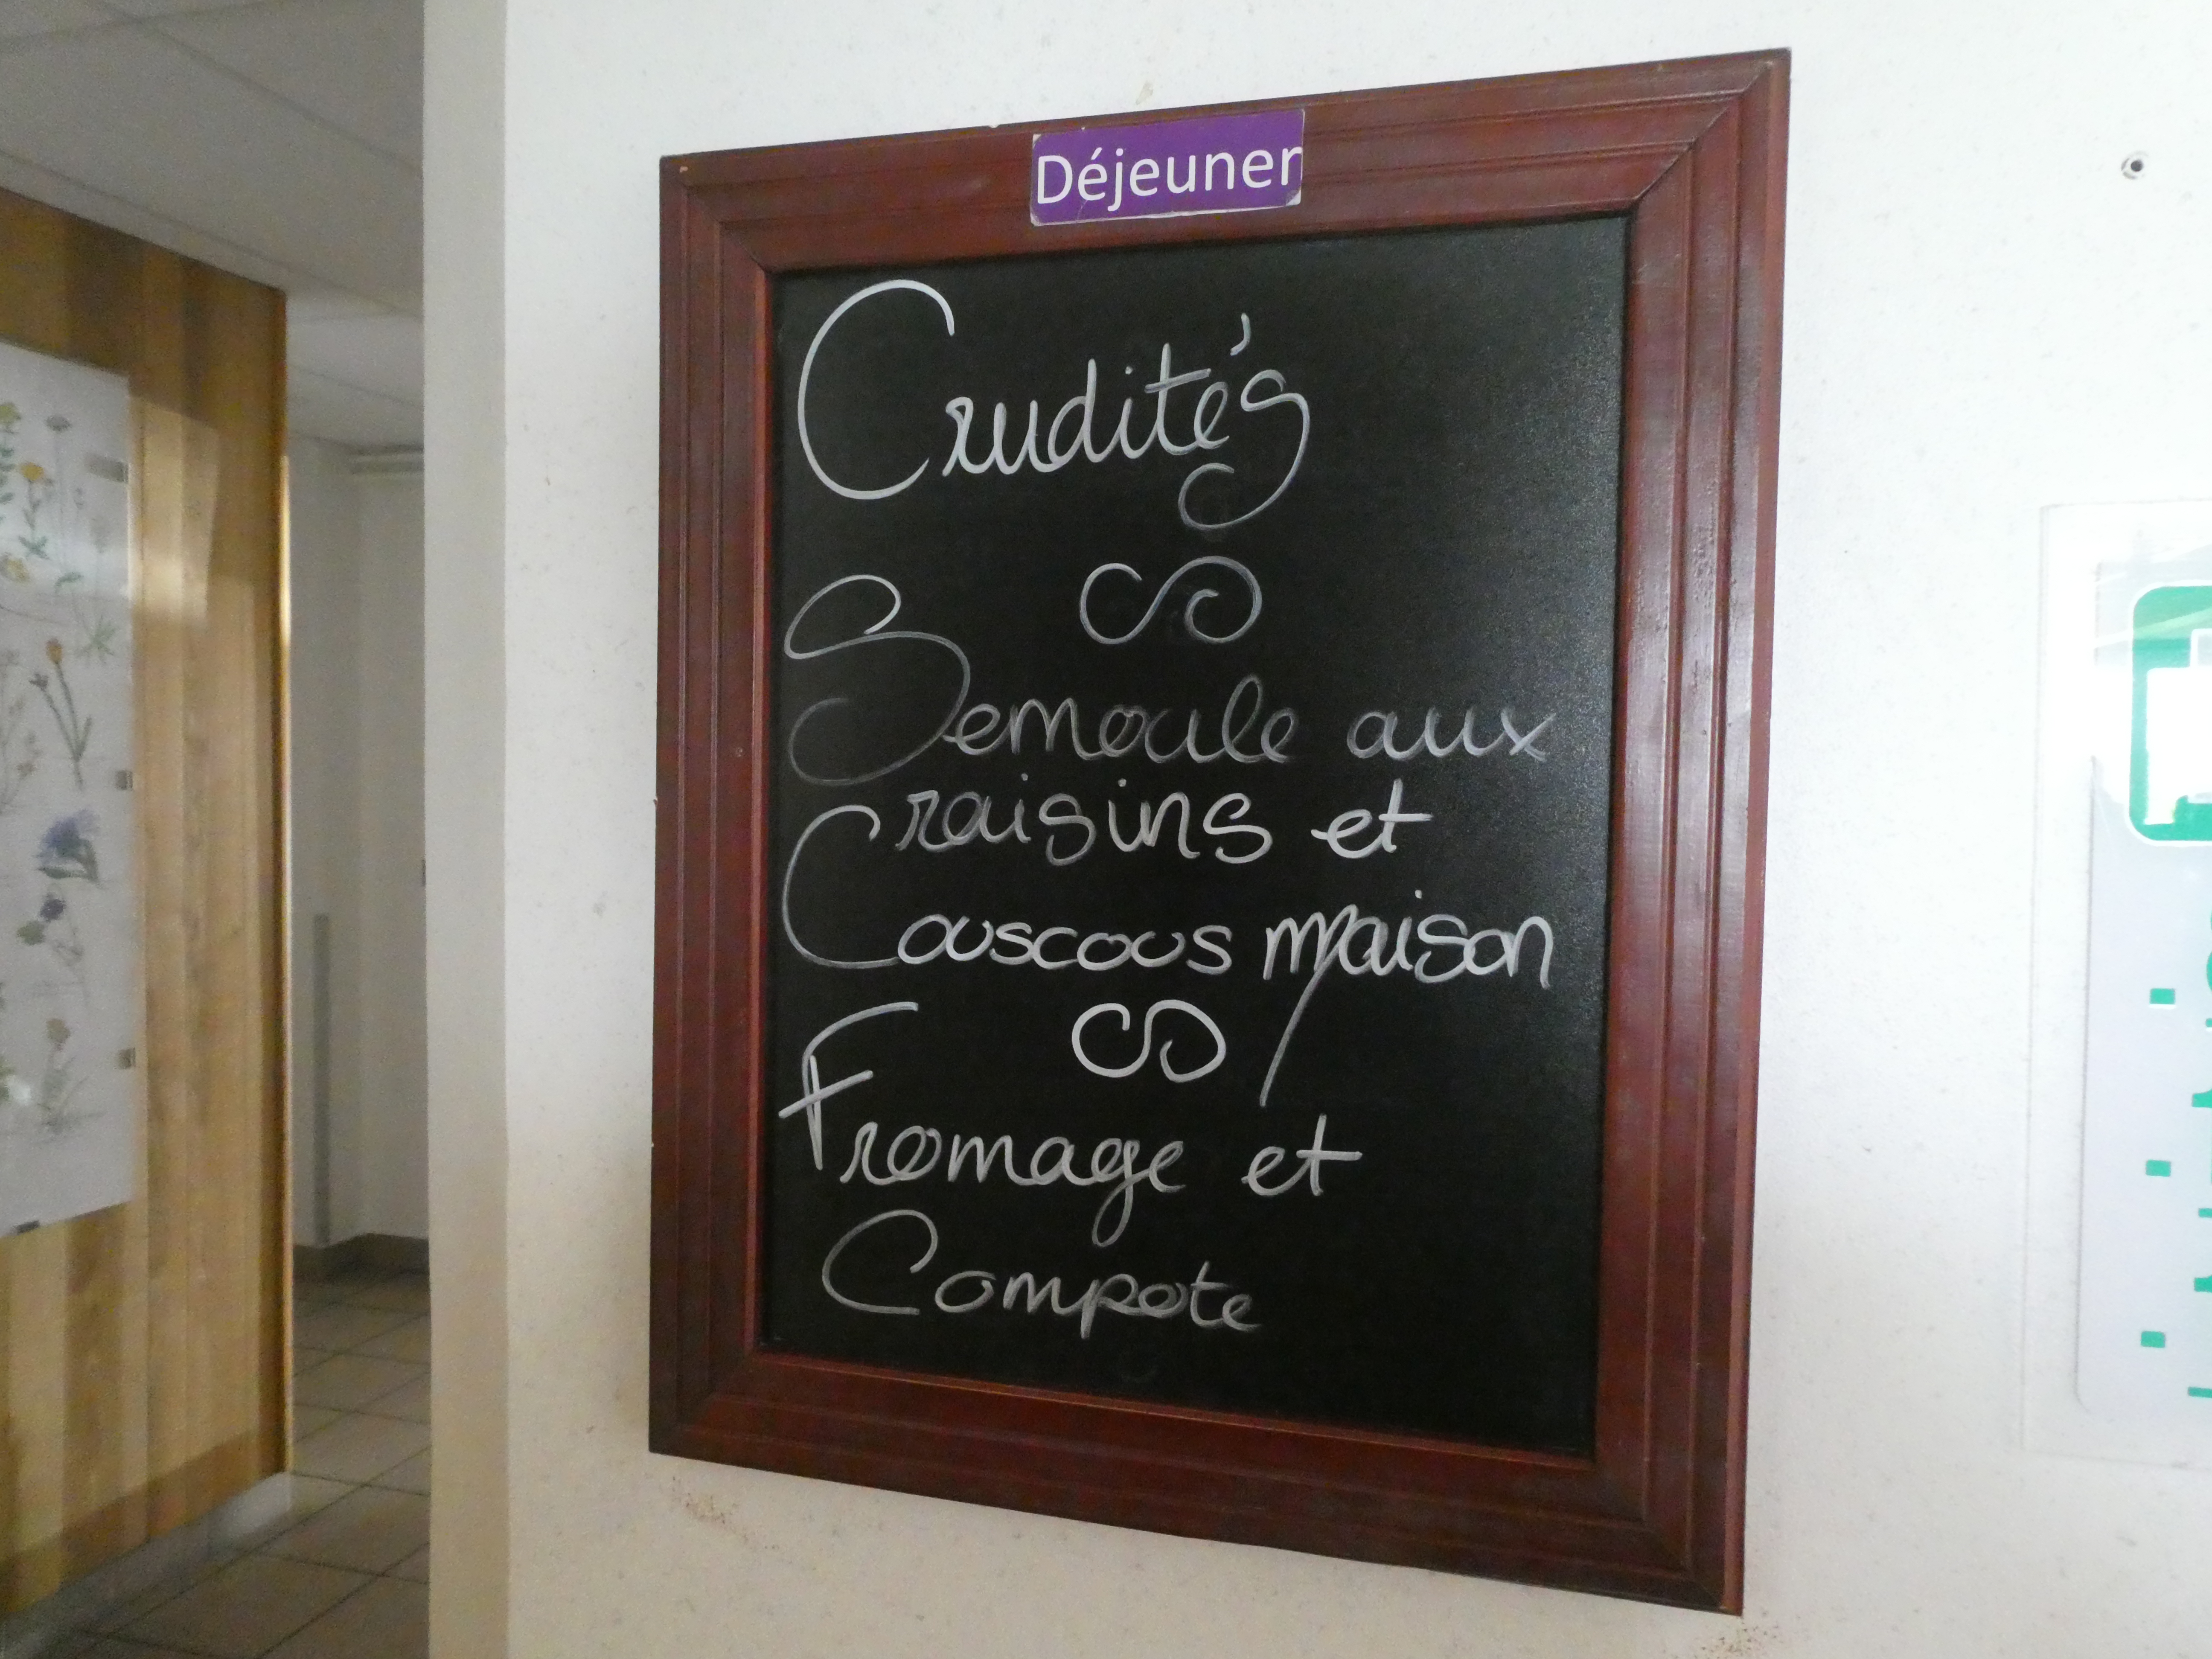 Déjeuner
Crudités
Semoule aux
raisins et
Couscous maison
Fromage et
Compote